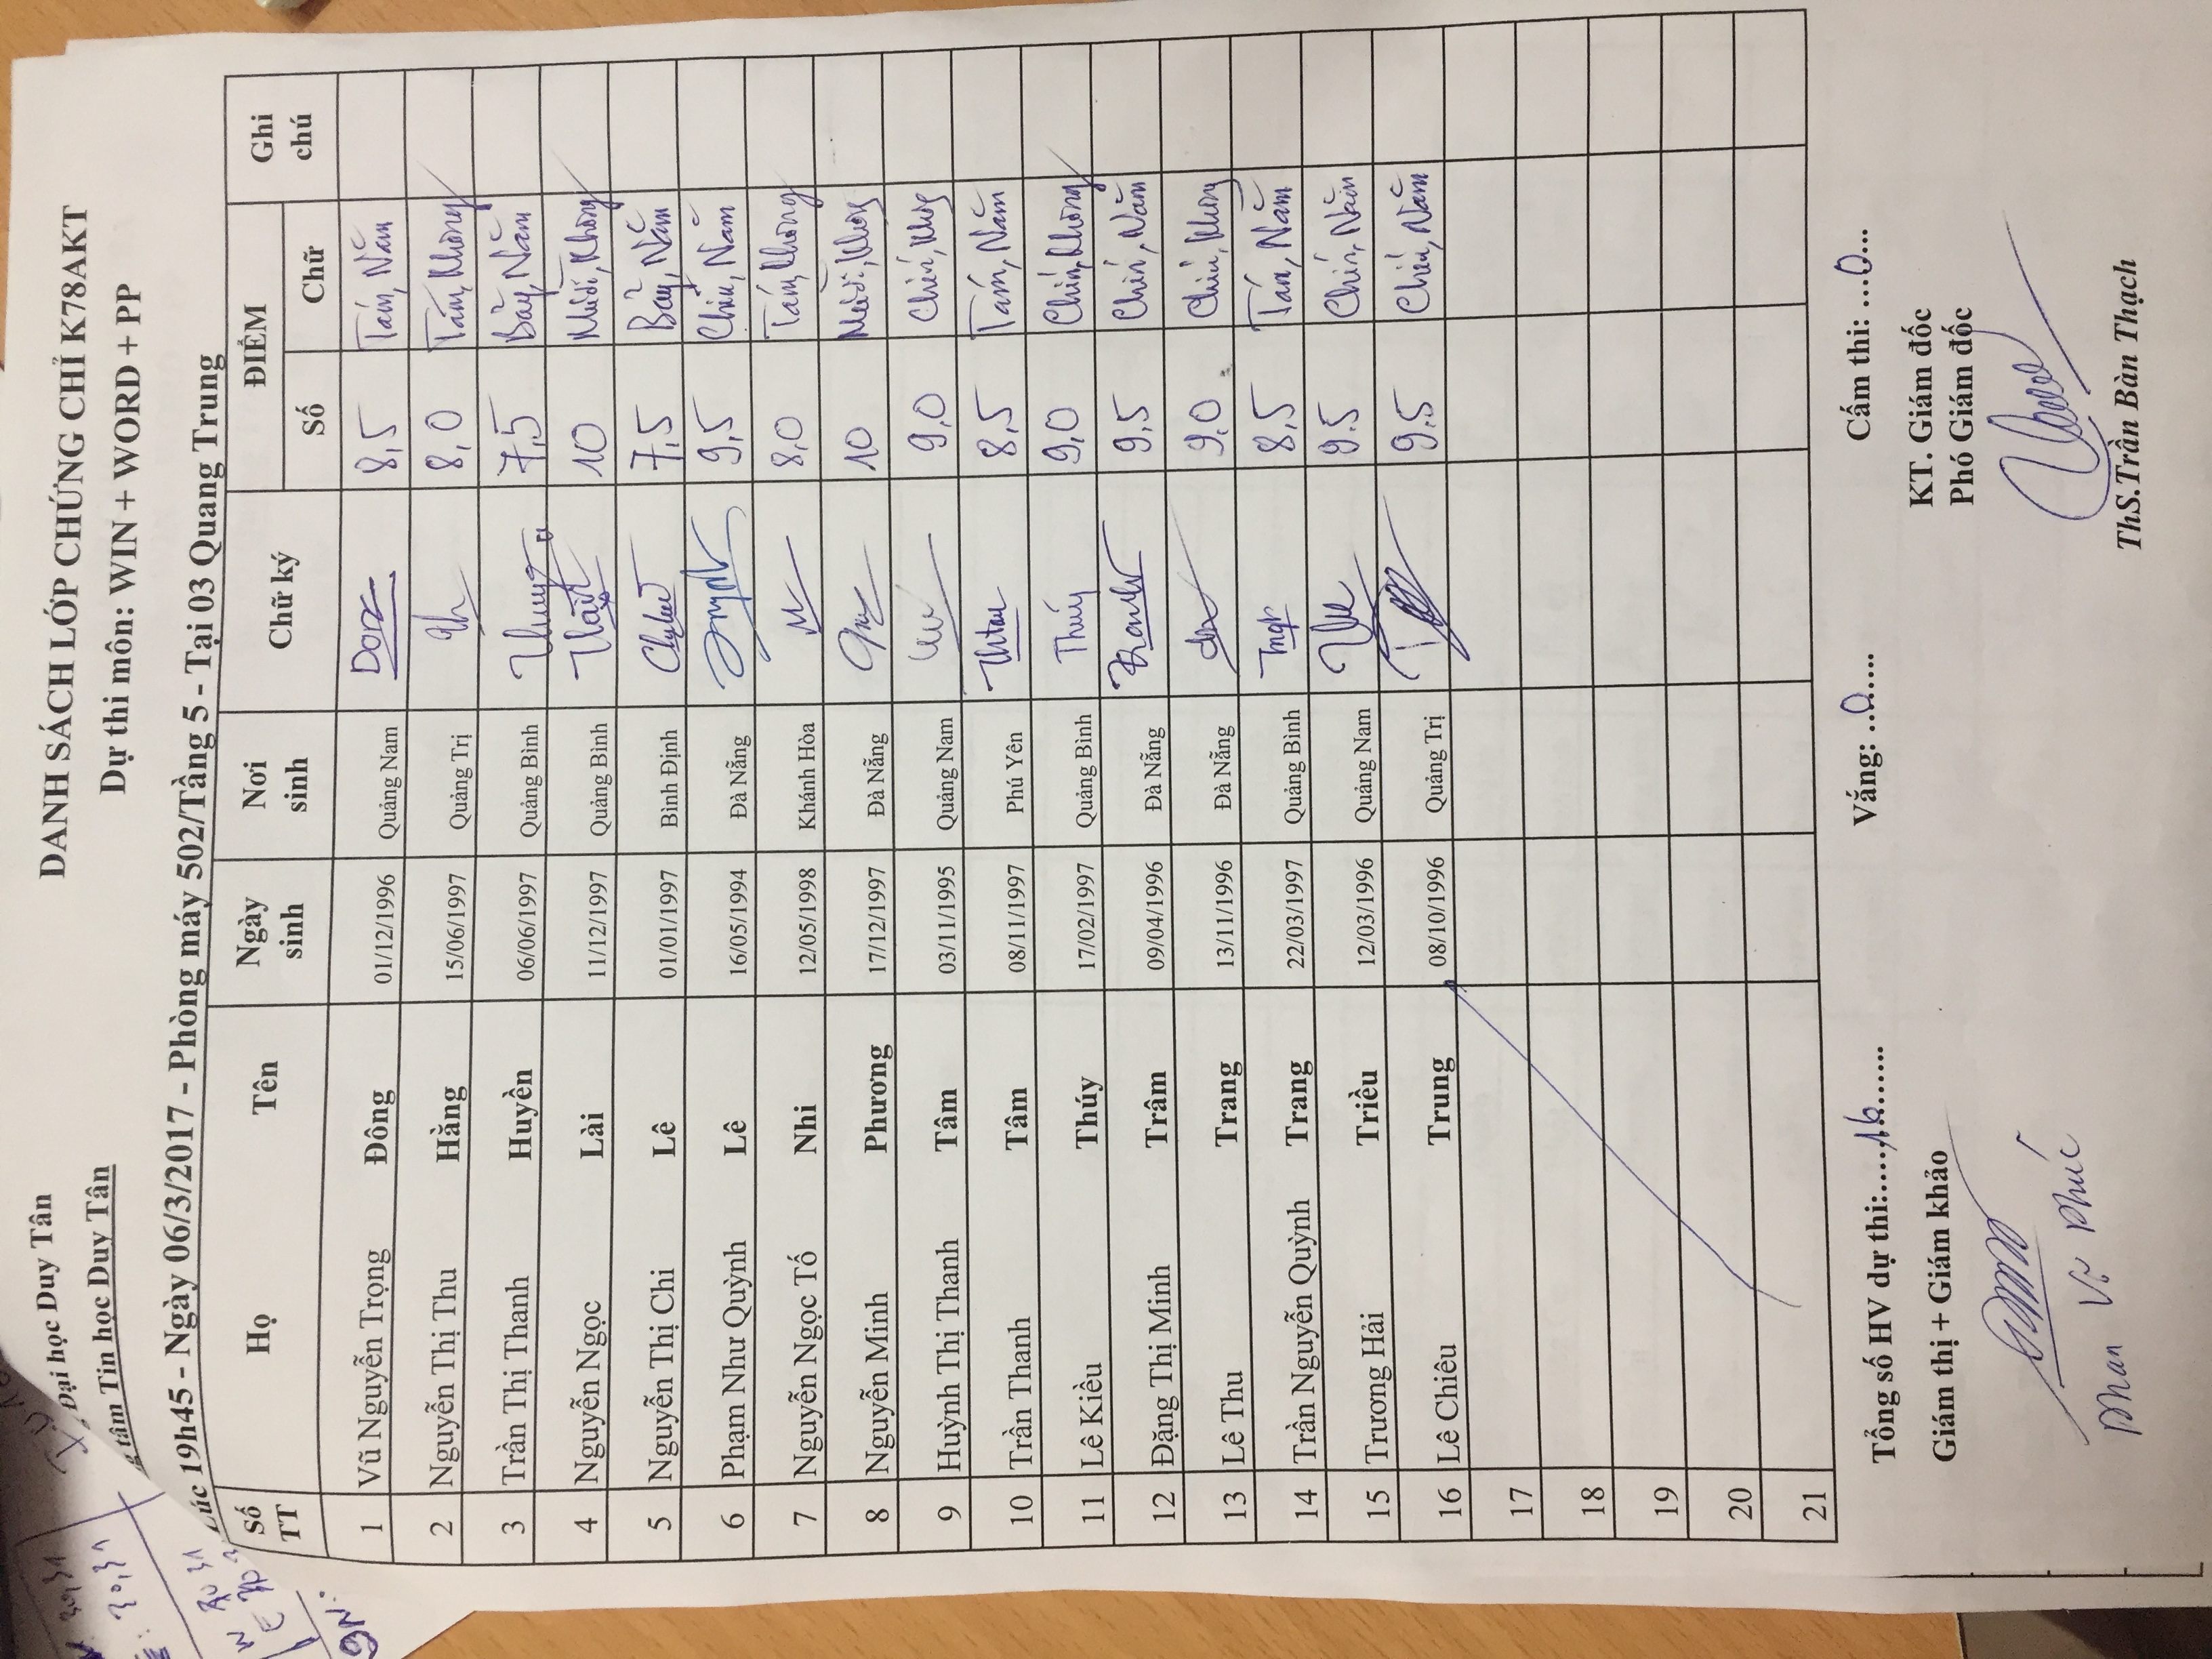 Đại học Duy Tân
tâm Tin học Duy Tân
DANH SÁCH LỚP CHỨNG CHỈ K78AKT
Dự thi môn: WIN + WORD + PP
Lúc 19h45 - Ngày 06/3/2017 - Phòng máy 502/Tầng 5 - Tại 03 Quang Trung
Số TT Họ Tên Ngày sinh Nơi sinh Chữ ký ĐIỂM Ghi chú
Số Chữ
1 Vũ Nguyễn Trọng Đông 01/12/1996 Quảng Nam 8,5 Tám, Năm
2 Nguyễn Thị Thu Hằng 15/06/1997 Quảng Trị 8,0 Tám, Không
3 Trần Thị Thanh Huyền 06/06/1997 Quảng Bình 7,5 Bảy, Năm
4 Nguyễn Ngọc Lài 11/12/1997 Quảng Bình 10 Mười, Không
5 Nguyễn Thị Chi Lê 01/01/1997 Bình Định 7,5 Bảy, Năm
6 Phạm Như Quỳnh Lê 16/05/1994 Đà Nẵng 9,5 Chín, Năm
7 Nguyễn Ngọc Tố Nhi 12/05/1998 Khánh Hòa 8,0 Tám, Không
8 Nguyễn Minh Phương 17/12/1997 Đà Nẵng 10 Mười, Không
9 Huỳnh Thị Thanh Tâm 03/11/1995 Quảng Nam 9,0 Chín, Không
10 Trần Thanh Tâm 08/11/1997 Phú Yên 8,5 Tám, Năm
11 Lê Kiều Thúy 17/02/1997 Quảng Bình Thúy 9,0 Chín, Không
12 Đặng Thị Minh Trâm 09/04/1996 Đà Nẵng 9,5 Chín, Năm
13 Lê Thu Trang 13/11/1996 Đà Nẵng 9,0 Chín, Không
14 Trần Nguyễn Quỳnh Trang 22/03/1997 Quảng Bình 8,5 Tám, Năm
15 Trương Hải Triều 12/03/1996 Quảng Nam 9.5 Chín, Năm
16 Lê Chiêu Trung 08/10/1996 Quảng Trị 9.5 Chín, Năm
17
18
19
20
21
Tổng số HV dự thi:....16...... Vắng: ..0..... Cấm thi: ...0...
Giám thị + Giám khảo KT. Giám đốc
Phó Giám đốc
Phan Văn Phúc ThS.Trần Bàn Thạch